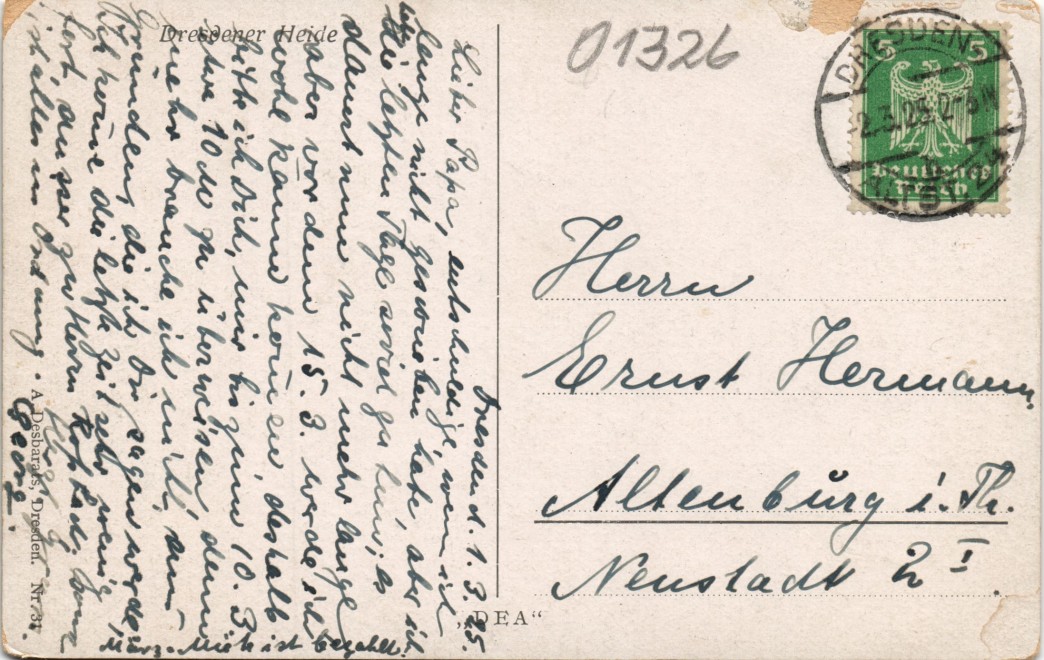 Dresdener Heide
01326
DRESDEN
-2.3.25. 2-3 N
ALTST.
5 5
Deutsches
Reich
Dresden d. 1.3.25.
Lieber Papa, entschuldige, wenn ich
lange nicht geschrieben habe aber ich
die letzten Tage soviel zu tun, es
dauert nun nicht mehr lange
aber vor dem 15.3. werde ich
wohl kaum kommen deshalb
bitte ich Dich, mir bis zum 10.3.
etwa 10 M zu überweisen denn
mehr brauche ich nicht, aus
Gründen, die ich Dir sagen werde.
Ich komme die letzte Zeit sehr wenig
fort, ausser zu Herrn
ist alles in Ordnung.
Georg.
März-Miete ist bezahlt.
A. Desbarats, Dresden. Nr. 31.
"DEA"
Herrn
Ernst Hermann,
Altenburg i. Th.
Neustadt 2 I